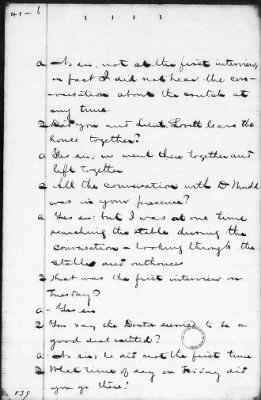 41-6
a- No sir, not at the first interview
in fact I did not hear the con-
versation about the crutch at
any time.
Q Did you and Lieut. Lovett leave the
house together?
a Yes sir; we went there together and
left together
Q All the conversation with Dr Mudd
was in your presence?
a Yes sir: but I was at one time
searching the stable during the
conversation - looking through the
stables and outhouses
Q That was the first interview on
Tuesday?
a- Yes sir
Q You say the Doctor seemed to be a
good deal excited?
a- No sir; he did not the first time
Q What time of day on Friday did
you go there?